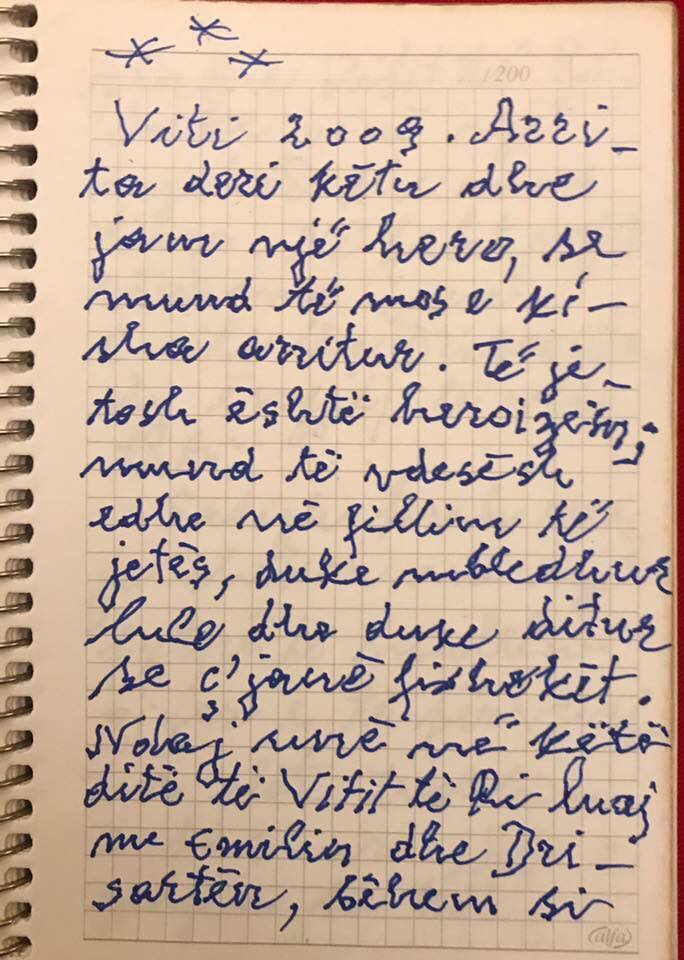 /200
Viti 2009. Arri-
ta deri këtu dhe
jam një hero, se
mund të mos e ki-
sha arritur. Të je-
tosh është heroizëm;
mund të vdesësh
edhe në fillim të
jetës, duke mbledhur
lule dhe duke ditur
se ç'janë fishekët.
Ndaj unë në këto
ditë të Vitit të Ri luaj
me Emilin dhe Bri-
sartën, bëhem si
alfa